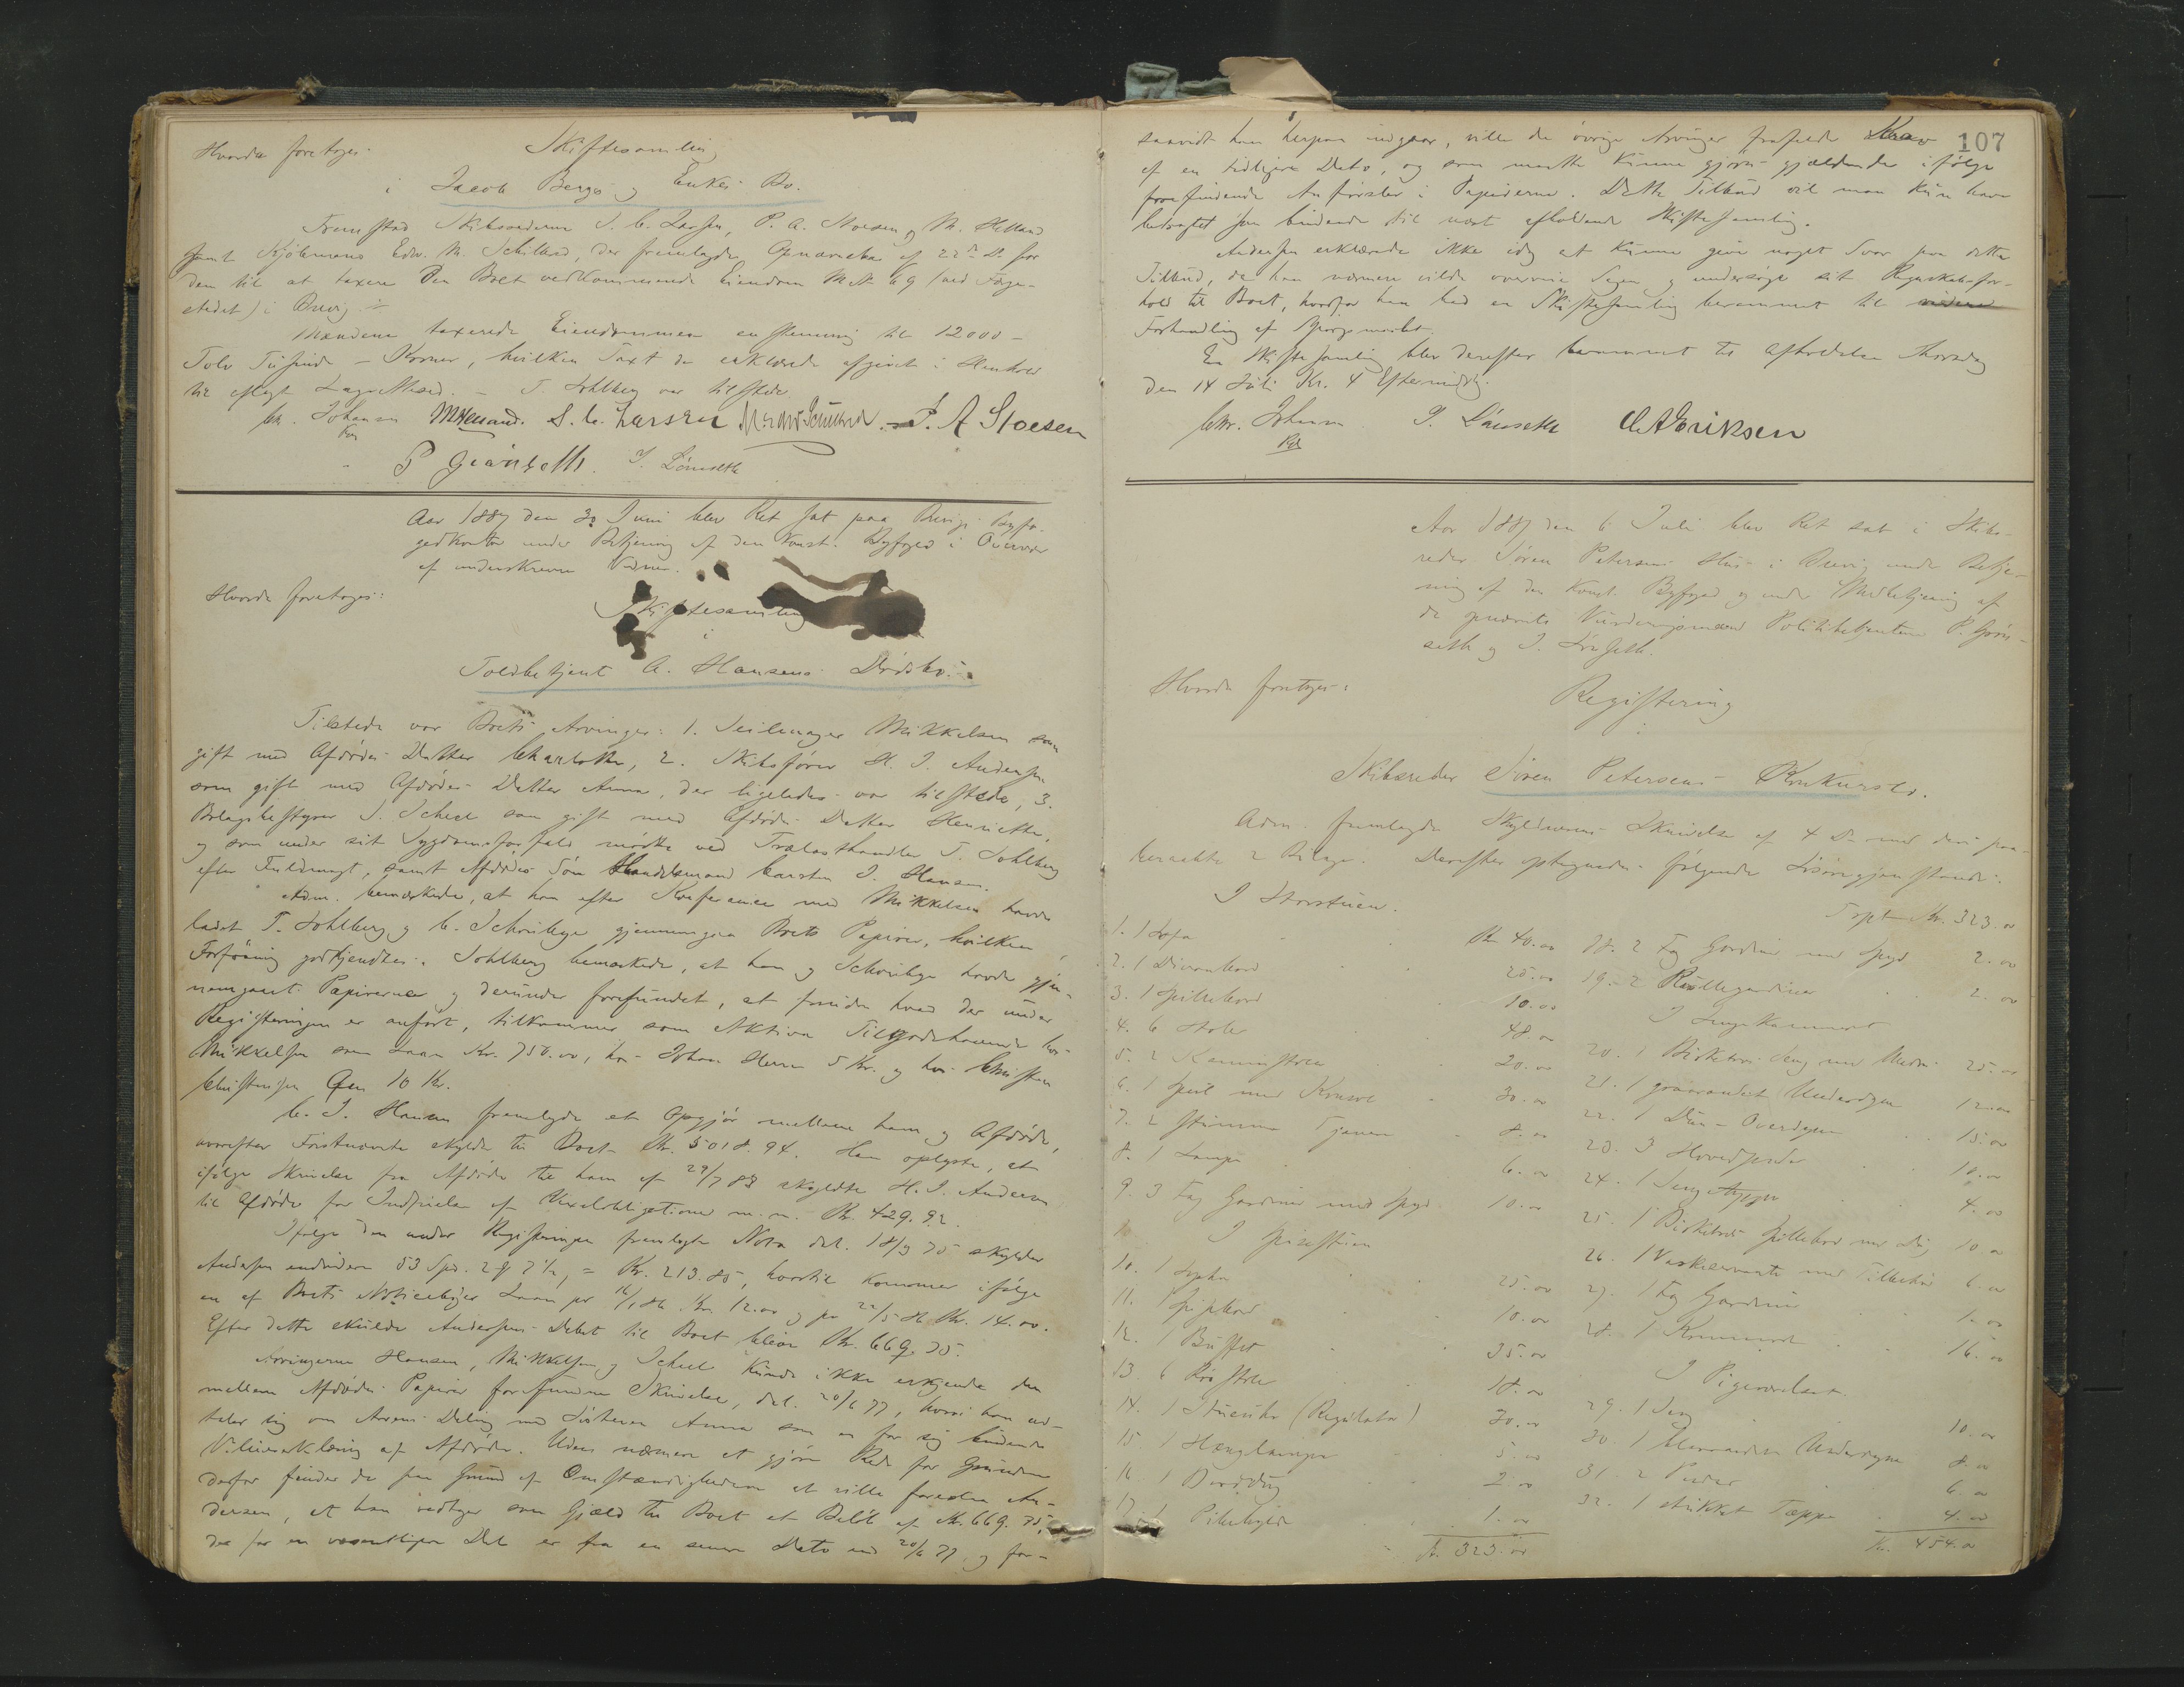 Hvorda foretoges:
Skiftesamling
i Jacob Berges og Enkes Bo.
Fremstod Skibsrederne S. C. Larsen, P. A. Stoesen og M. Helland
samt Kjøbmand Edw. M. Schilbred, der fremlagde Opnævnelse af 22de Ds. for
dem til at taxere den Boet vedkommende Eiendom M. N. 69 (ved Færge-
stedet) i Brevig.
Mændene taxerede Eiendommen enstemmig til 12000 –
Tolv Tusinde – Kroner, hvilken Taxt de erklærede afgivet i Henhold
til aflagt Laugrettesed. – T. Sohlberg var tilstede.
Chr. Johansen
Kst
MHelland. S. C. Larsen P. A Stoesen
P Grønseth. J. Lönseth
Aar 1887 den 30 Juni blev Ret sat paa Brevigs Byfo-
gedkontor under Betjening af den Konst. Byfoged i Overvær
af underskrevne Vidner.
Hvorda foretoges:
Skiftesamling
i
Toldbetjent A. Hansens Dødsbo.
Tilstede var Boets Arvinger: 1. Seilmager Mikkelsen som
gift med Afdødes Datter Charlotte, 2. Skibsfører H. J. Andersen
som gift med Afdødes Datter Anna, der ligeledes var tilstede, 3.
Bolagsbestyrer J. Scheel som gift med Afdødes Datter Henriette,
og som under sit Sygdomsforfald mødte ved Trælasthandler T. Sohlberg
efter Fuldmagt, samt Afdødes Søn Handelsmand Carsten J. Hansen.
Adm. bemærkede, at han efter Konference med Mikkelsen havde
ladet T. Sohlberg og C. Schreiber gjennemgaa Boets Papirer, hvilken
Forføining godkjendtes. Sohlberg bemærkede, at han og Schreiber havde gjen-
nemgaaet Papirerne og derunder forefundet, at foruden hvad der under
Registeringen er anført, tilkommer som Aktiva Tilgodehavende hos
Mikkelsen som Laan Kr. 750.00, hos Johan Herm 5 Kr. og hos Christen
Christensen 10 Kr.
C. J. Hansen fremlagde et Opgjör mellem ham og Afdöde,
hvorefter Förstnævnte skylder til Boet Kr. 5018.94. Han oplyste, at
ifølge Skrivelse fra Afdöde til ham af 29/7 83 skyldte H. J. Andersen
til Afdöde for Indfrielse af Vexelobligationer m. m. Kr. 429.92.
Ifølge den under Registeringen fremlagte Nota dat. 18/9 75 skylder
Andersen endvidere 53 Spd. 2 7 1/2, = Kr. 213.85, hvortil kommer ifølge
en af Boets Noticebøger Laan pr 16/1 86 Kr. 12.00 og pr 22/5 86 Kr. 14.00.
Efter dette skulde Andersens Debet til Boet blive Kr. 669.75.
Arvingerne Hansen, Mikkelsen og Scheel kunde ikke erkjende den
mellem Afdødes Papirer forefundne Skrivelse, dat. 20/6 77, hvori han ud-
taler sig om Arvens Deling med Søsteren Anna som en for sig bindende
Villieserklæring af Afdøde. Uden nærmere at gjøre Rede for Grunden
derfor finder de paa Grund af Omstændighederne at ville foreslaa An-
dersen, at han vedtager som Gjæld til Boet et Beløb af Kr. 669.75,
der for en væsentligere Del er fra en senere Dato end 20/6 77, og for-
107
saavidt han herpaa indgaar, ville de øvrige Arvinger frafalde Krav
af en tidligere Dato, og som maatte kunne gjøres gjældende ifølge
forefindende Anførsler i Papirerne. Dette Tilbud vil man kun have
betragtet som bindende til næst afholdende Skiftesamling.
Andersen erklærede ikke idag at kunne give noget Svar paa dette
Tilbud, da han nærmere vilde overveie Sagen og undersøge sit Regnskabsfor-
hold til Boet, hvorfor han bad en Skiftesamling berammet til
Forhandling af Spørgsmaalet.
En Skiftesamling blev derefter berammet til Afholdelse Thorsdag
den 14 Juli Kl. 4 Eftermiddag.
Chr. Johansen
Kst
J. Lönseth
A Eriksen
Aar 1887 den 6 Juli blev Ret sat i Skibs-
reder Sören Petersens Hus i Brevig under Betje-
ning af den Konst. Byfoged og under Medbetjening af
de opnævnte Vurderingsmænd Politibetjentene P. Grøn-
seth og J. Lönseth.
Hvorda foretoges:
Registering
i
Skibsreder Sören Petersens Konkursbo.
Adm. fremlagde Skyldnerens Skrivelse af 4 Ds. med deri paa-
beraabte 2 Bilage. Derefter optegnedes følgende Løsøregjenstande:
I Storstuen.
1. 1 Sofa Kr. 40.00
2. 1 Divanbord 25.00
3. 1 Spillebord 10.00
4. 6 Stoler 48.00
5. 2 20.00
6. 1 Speil med Konsol 30.00
7. 2 8.00
8. 1 Lampe 6.00
9. 3 Fag Gardiner med Spyd 10.00
I Spisestuen
10. 1 Sopha 25.00
11. 1 Spisebord 10.00
12. 1 Buffet 35.00
13. 6 Rørstole 18.00
14. 1 Stueuhr (Regulator) 30.00
15 1 Hænglampe 5.00
16 1 Borddug 2.00
17. 1 Pibehylde 1.00
Kr. 323.00
Tspt Kr. 323.00
18. 2 Fag Gardiner med Spyd 2.00
19. 2 Rullegardiner 2.00
I Sengekammeret
20. 1 Birketræs Seng med Madr. 25.00
21. 1 graarandet Underdyne 12.00
22. 1 Dun-Overdyne 15.00
23. 3 Hovedputer 10.00
24. 1 Sengetæppe 4.00
25. 1 Birketræs Spillebord med Dug 10.00
26. 1 Vaskeservante med Tilbehør 6.00
27. 1 Fag Gardiner 1.00
28. 1 Kommode 16.00
I Pigeværelset.
29. 1 Seng 10.00
30. 1 blaarandet Underdyne 8.00
31. 2 Puder 6.00
32. 1 stukket Tæppe 4.00
Kr. 454.00